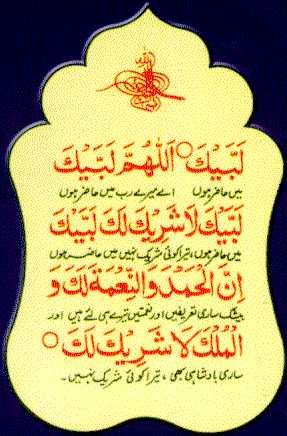 لَبَّيْكَ ○ اَللّٰهُمَّ لَبَّيْكَ
میں حاضر ہوں اے میرے رب میں حاضر ہوں
لَبَّيْكَ لَا شَرِيْكَ لَكَ لَبَّيْكَ
میں حاضر ہوں، تیرا کوئی شریک نہیں میں حاضر ہوں
اِنَّ الْحَمْدَ وَالنِّعْمَةَ لَكَ وَ
بیشک ساری تعریفیں اور نعمتیں تیرے ہی لئے ہیں اور
الْمُلْكَ لَا شَرِيْكَ لَكَ ○
ساری بادشاہی بھی، تیرا کوئی شریک نہیں۔